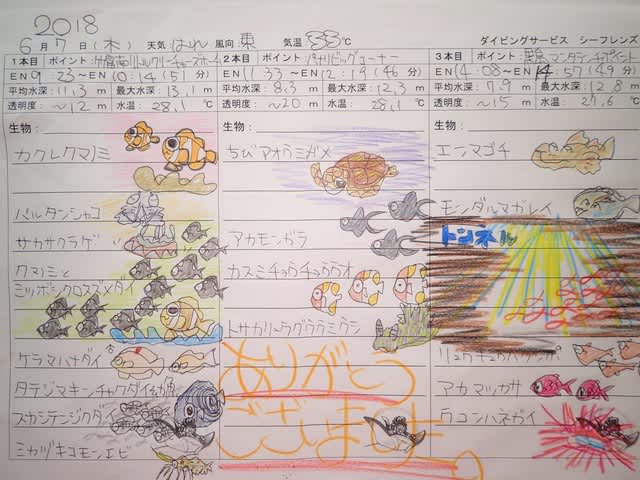 2018
6月7日(木) 天気 はれ 風向 東 気温 33℃ ダイビングサービス シーフレンズ
1本目 ポイント:
EN 9:23~EN 10:14(51分)
平均水深:11.3m 最大水深:13.1m
透明度:~12m 水温:28.1℃
生物:
カクレクマノミ
バルタンシャコ
サカサクラゲ
クマノミと
ミツボシクロスズメダイ
ケラマハナダイ
タテジマキンチャクダイ幼魚
スカシテンジクダイ
ミカヅキコモンエビ
2本目 ポイント:
EN 11:33~EN 12:19(46分)
平均水深:8.3m 最大水深:12.3m
透明度:~20m 水温:28.1℃
生物:
ちびアオウミガメ
アカモンガラ
カスミチョウチョウウオ
トサカリュウグウウミウシ
ありがとう
ございます
3本目 ポイント:
EN 14:08~EN 14:57(49分)
平均水深:7.9m 最大水深:12.8m
透明度:~15m 水温:27.6℃
生物:
エンマゴチ
モンダルマガレイ
トンネル
リュウキュウハタンポ
アカマツカサ
ウコンハネガイ